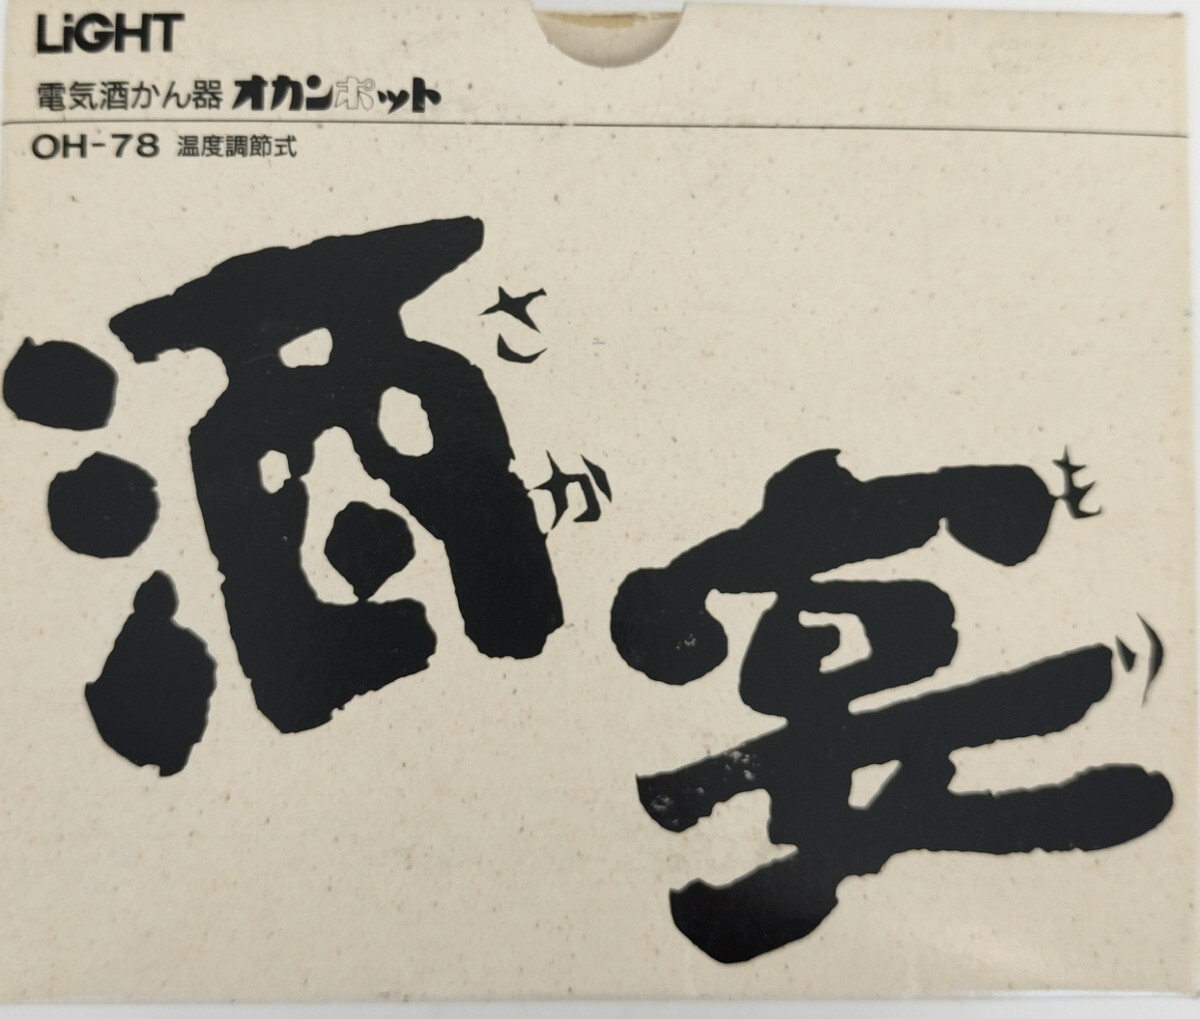 LiGHT
電気酒かん器 オカンポット
OH-78 温度調節式
酒宴
さかもり